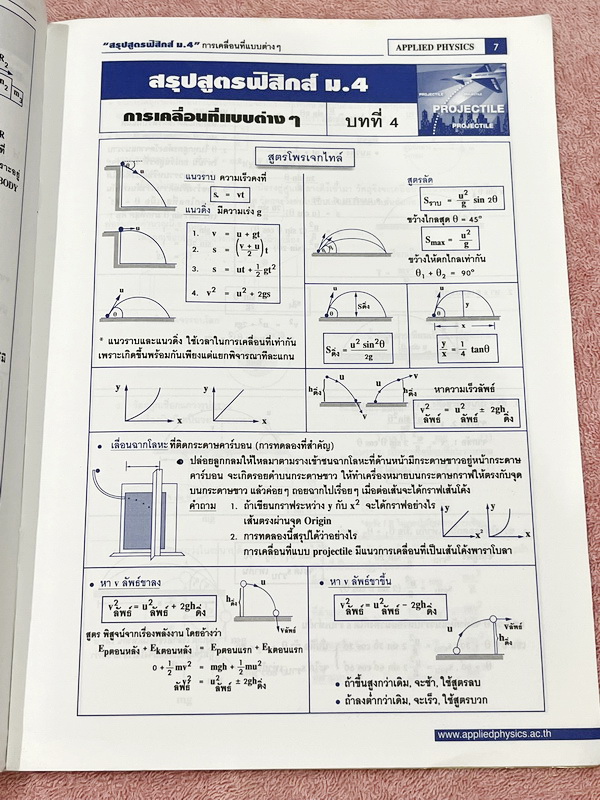 "สรุปสูตรฟิสิกส์ ม.4" การเคลื่อนที่แบบต่างๆ
APPLIED PHYSICS 7
สรุปสูตรฟิสิกส์ ม.4
การเคลื่อนที่แบบต่าง ๆ บทที่ 4
PROJECTILE
PROJECTILE
PROJECTILE
สูตรโพรเจกไทล์
แนวราบ ความเร็วคงที่
s = vt
แนวดิ่ง มีความเร่ง g
1. v = u + gt
2. s = ((v + u)/2) t
3. s = ut + 1/2 gt²
4. v² = u² + 2gs
* แนวราบและแนวดิ่ง ใช้เวลาในการเคลื่อนที่เท่ากัน
เพราะเกิดขึ้นพร้อมกันเพียงแต่แยกพิจารณาทีละแกน
สูตรลัด
Sราบ = u²/g sin 2θ
ขว้างไกลสุด θ = 45°
Smax = u²/g
ขว้างให้ตกไกลเท่ากัน
θ₁ + θ₂ = 90°
u θ Sดิ่ง
Sดิ่ง = u² sin²θ/2g
u θ y x
y/x = 1/4 tanθ
y x y x
hดิ่ง u v u v hดิ่ง
หาความเร็วลัพธ์
v²ลัพธ์ = u²ลัพธ์ ± 2ghดิ่ง
• เลื่อนฉากโลหะที่ติดกระดาษคาร์บอน (การทดลองที่สำคัญ)
ปล่อยลูกกลมให้ไหลมาตามรางเข้าชนฉากโลหะที่ด้านหน้ามีกระดาษขาวอยู่หน้ากระดาษ
คาร์บอน จะเกิดรอยดำบนกระดาษขาว ให้ทำเครื่องหมายบนกระดาษกราฟให้ตรงกับจุด
บนกระดาษขาว แล้วค่อยๆ ถอยฉากไปเรื่อยๆ เมื่อต่อเส้นจะได้กราฟเส้นโค้ง
คำถาม 1. ถ้าเขียนกราฟระหว่าง y กับ x² จะได้กราฟอย่างไร
เส้นตรงผ่านจุด Origin
2. การทดลองนี้สรุปได้ว่าอย่างไร
การเคลื่อนที่แบบ projectile มีแนวการเคลื่อนที่เป็นเส้นโค้งพาราโบลา
y x² y x
• หา v ลัพธ์ขาลง
v²ลัพธ์ = u²ลัพธ์ + 2ghดิ่ง
hดิ่ง u vลัพธ์
สูตร พิสูจน์จากเรื่องพลังงาน โดยอ้างว่า
Epตอนหลัง + Ekตอนหลัง = Epตอนแรก + Ekตอนแรก
0 + 1/2 mv² = mgh + 1/2 mu²
v²ลัพธ์ = u²ลัพธ์ ± 2ghดิ่ง
• หา v ลัพธ์ขาขึ้น
v²ลัพธ์ = u²ลัพธ์ − 2ghดิ่ง
u vลัพธ์ hดิ่ง
• ถ้าขึ้นสูงกว่าเดิม, จะช้า, ใช้สูตรลบ
• ถ้าลงต่ำกว่าเดิม, จะเร็ว, ใช้สูตรบวก
www.appliedphysics.ac.th